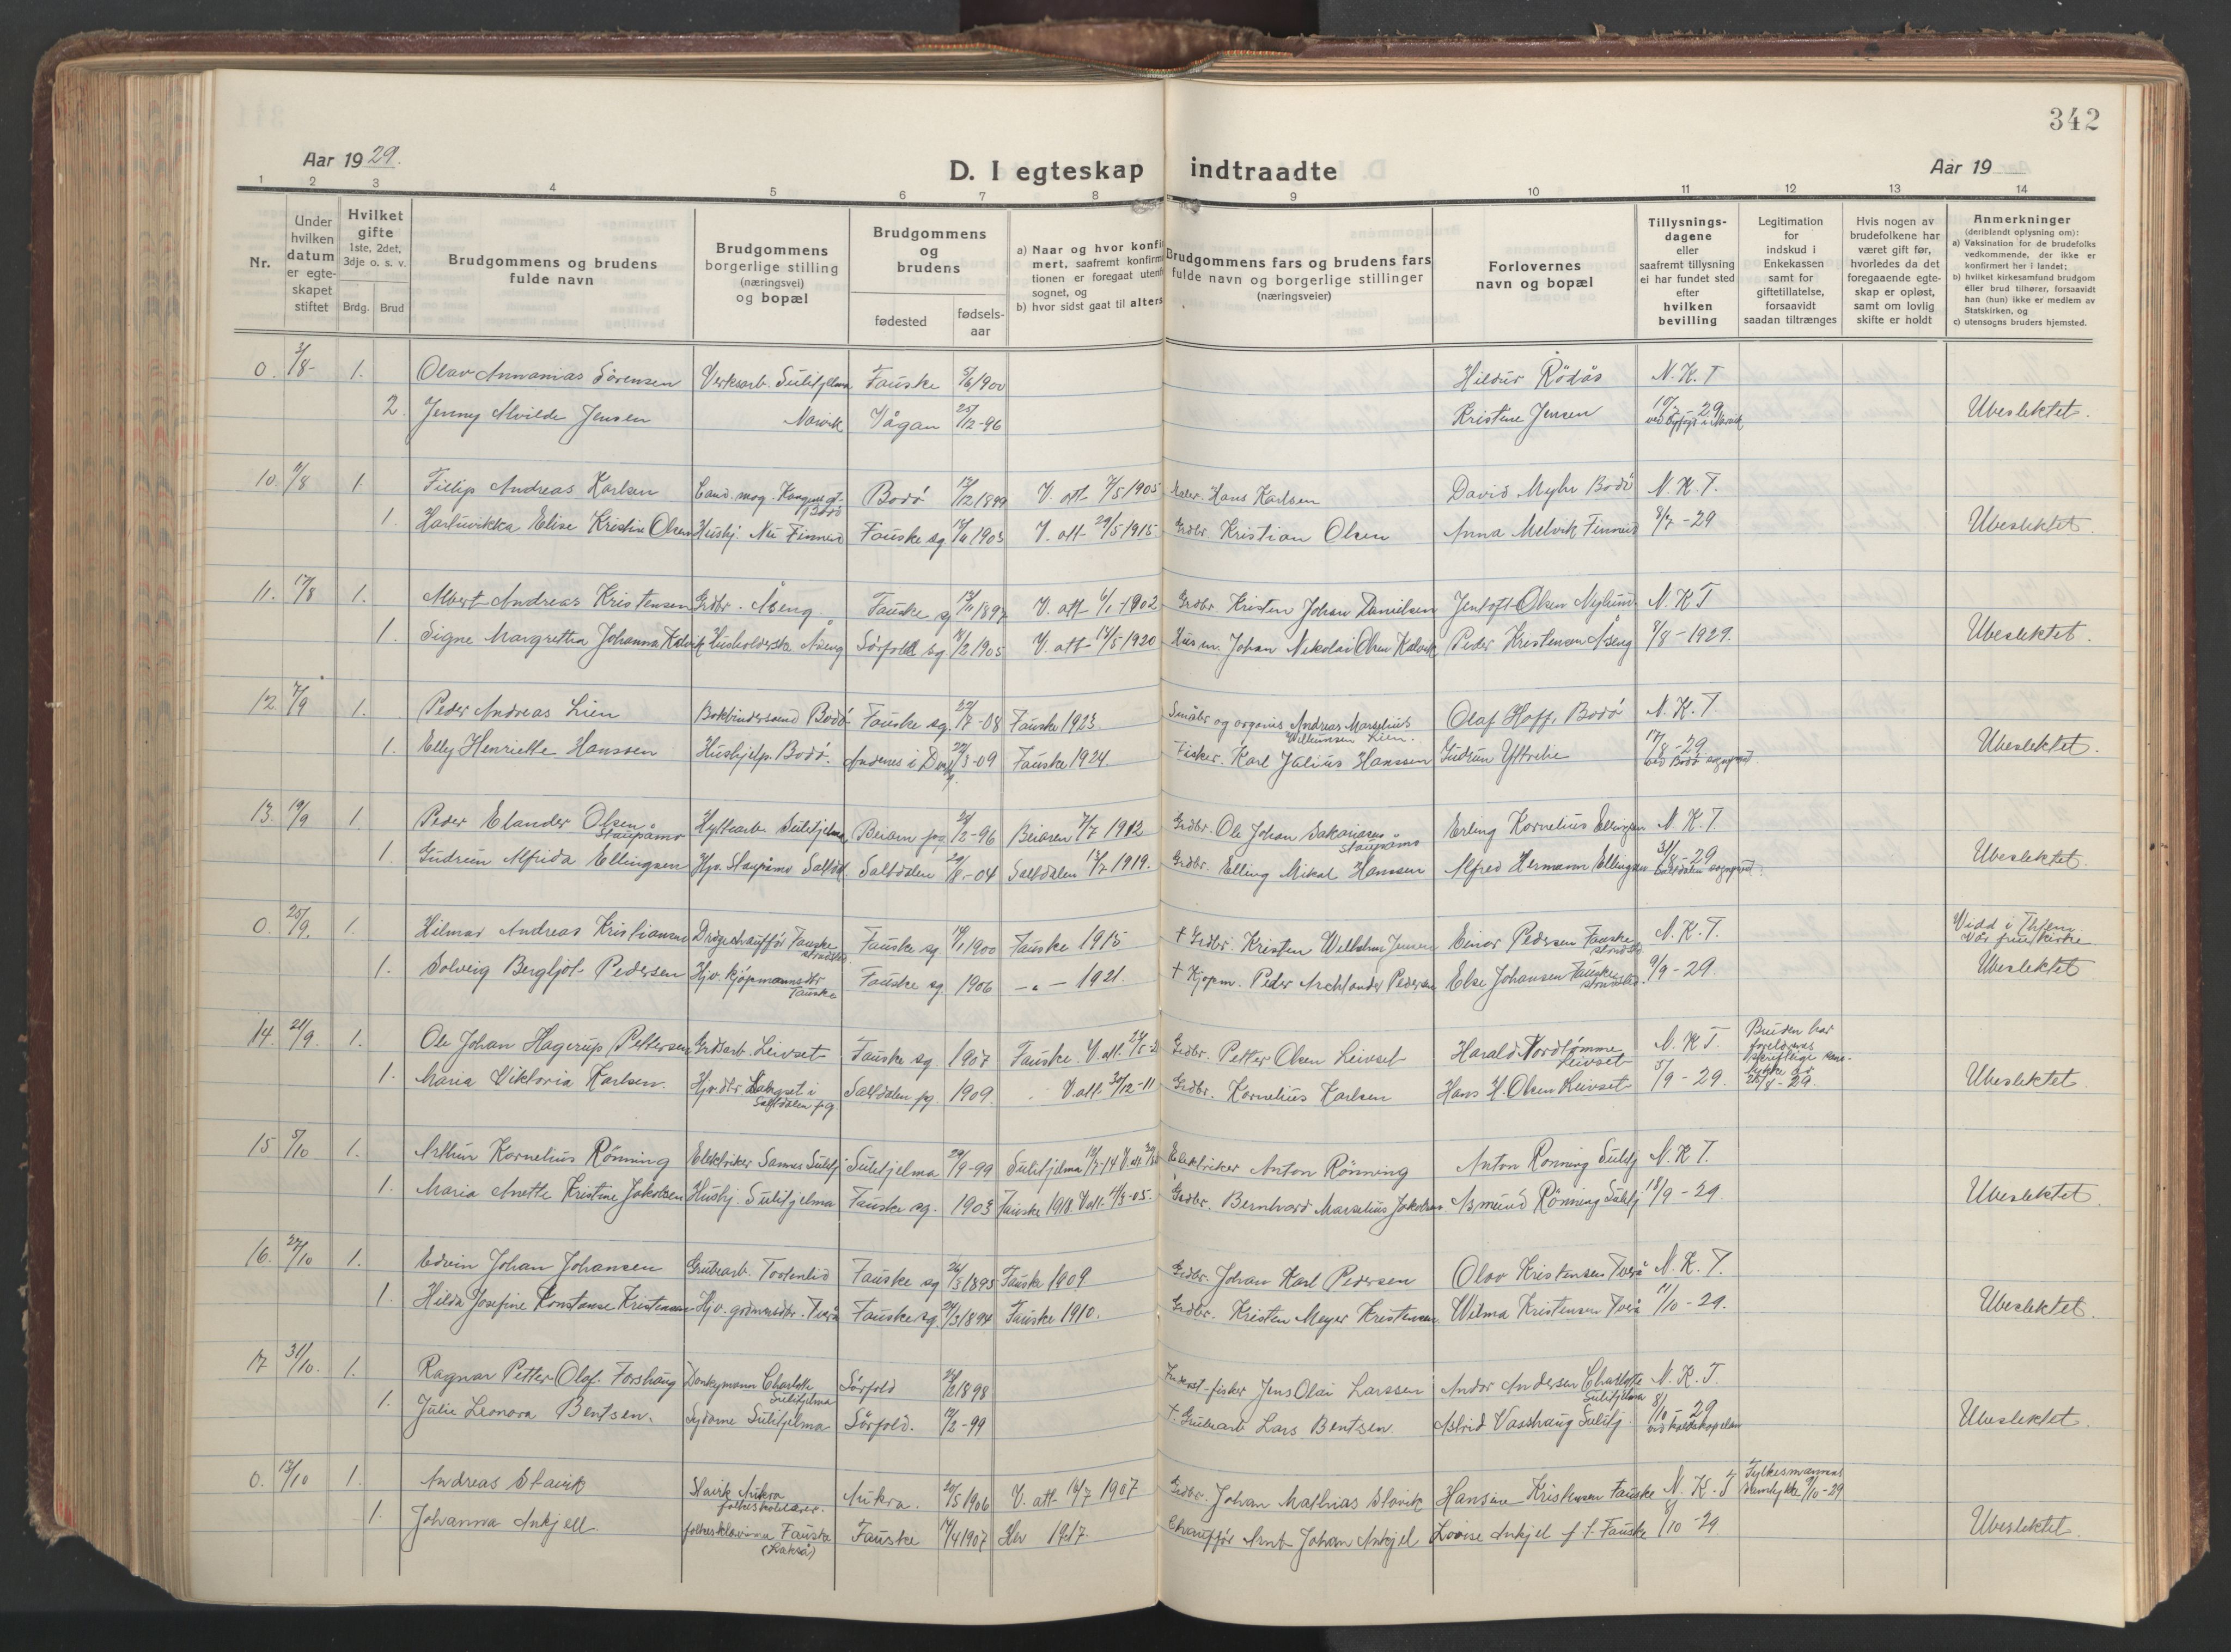 342
Aar 1929.
D. I egteskap indtraadte
Aar 19
1 2 3 4 5 6 7 8 9 10 11 12 13 14
Nr.
Under hvilken datum er egteskapet stiftet
Hvilket gifte 1ste, 2det, 3dje o. s. v.
Brdg. Brud
Brudgommens og brudens fulde navn
Brudgommens borgerlige stilling (næringsvei) og bopæl
Brudgommens og brudens
fødested
fødselsaar
a) Naar og hvor konfirmert, saafremt konfirmationen er foregaat utenfor sognet, og
b) hvor sidst gaat til alters
Brudgommens fars og brudens fars fulde navn og borgerlige stillinger (næringsveier)
Forlovernes navn og bopæl
Tillysningsdagene eller saafremt tillysning ei har fundet sted efter hvilken bevilling
Legitimation for indskud i Enkekassen samt for giftetillatelse, forsaavidt saadan tiltrænges
Hvis nogen av brudefolkene har været gift før, hvorledes da det foregaaende egteskap er opløst, samt om lovlig skifte er holdt
Anmerkninger (deriblandt oplysning om):
a) Vaksination for de brudefolks vedkommende, der ikke er konfirmert her i landet;
b) hvilket kirkesamfund brudgom eller brud tilhører, forsaavidt han (hun) ikke er medlem av Statskirken, og
c) utensogns bruders hjemsted.
0. 3/8- 1. Olav Annanias Sørensen Verksarb. Sulitjelma Fauske 5/6 1900 Hildur Rødås N. K. T
2. Jenny Alvilde Jensen Narvik Vågan 25/12-96 Kristine Jensen 19/7-29 Ubeslektet.
10. 1. Fillip Andreas Karlsen Cand. mag. Bodø Bodø 12/12 1899 V. att 7/5 1905 Maler. Hans Karlsen David Myhr Bodø N. K. T.
1. Elise Kristine Olsen Hushj. Finneid Fauske sg. 1903 V. att 29/5 1915 Grdbr. Kristian Olsen Anna Melvik Finneid 8/7-29 Ubeslektet.
11. 17/8 1. Albert Andreas Kristensen Grdbr. Åseng Fauske sg 1897 V. att 6/1-1902 Grdbr. Kristen Johan Danielsen Jentoft Olsen Nylund N. K T
1. Signe Margretha Johanna Kalvik Husholderske Åseng Sørfold sg 1905 V. att 1920 Husm. Johan Nikolai Olsen Kalvik Peder Kristensen Åseng 9/8-1929. Ubeslektet.
12. 7/9 1. Peder Andreas Lien Bokbindersvend Bodø Fauske sg. 22/7-08 Fauske 1923. Småbr og organis Andreas Marselius Willumsen Lien. Olaf Hoff, Bodø N. K. T
1. Elly Henriette Hanssen Hushjelp. Bodø. Andenes i 22/3-09 Fauske 1924. Fisker. Karl Julius Hanssen Gudrun Yttrebø 17/8-29 ved Bodø sogneprest. Ubeslektet.
13. 19/9 1. Peder Elander Olsen Staupåmo Hyttearb. Sulitjelma Beiarn pg 28/2-96 Beiaren 7/7 1912 Grdbr. Ole Johan Sakariasen Staupåmo Erling Kornelius Ellingsen N. K. T.
1. Gudrun Alfrida Ellingsen Hjv. Staupåmo Saltdal Saltdalen 29/8-04 Saltdalen 13/7 1919. Grdbr. Elling Mikal Hanssen Alfred Hermann Ellingsen 31/8-29 Saltdalen sogneprest. Ubeslektet.
0. 25/9. 1. Hilmar Andreas Kristiansen Drosjechauffør Fauske strandsted. Fauske sg. 19/1 1900 Fauske 1915 † Grdbr. Kristen Wilhelm Jensen Einar Pedersen Fauske strandsted. N. K. T. Vidd i Vår frue kirke
1. Solveig Bergljot Pedersen Hjv. kjøpmannsdtr Fauske Fauske sg. 1906 -"- 1921. † Kjøpm. Peder Archlander Pedersen Else Johansen Fauske strandsted. 9/9-29. Ubeslektet
14. 21/9. 1. Ole Johan Hagerup Pettersen Grdsarb. Leivset Fauske sg. 1907 Fauske. V. att. Grdbr. Petter Olsen Leivset Harald Nordtømme Leivset N. K T. Bruden har foreldrenes skriftlige samtykke av 26/8-29.
1. Maria Viktoria Karlsen. Hjv. dtr i Saltdalen pg. Saltdalen pg 1909. V. att. 30/12-11 Grdbr. Kornelius Karlsen Hans H. Olsen Leivset 5/9-29. Ubeslektet.
15 5/10 1. Arthur Kornelius Rønning Elektriker Sannes Sulitj. Sulitjelma 29/9-99 Sulitjelma 12/7-14 Elektriker Anton Rønning Anton Rønning Sulitj N. K T.
1. Maria Anette Kristine Jakobsen Hushj. Sulitjelma Fauske sg. 1903 Fauske 1918. V. att. 11/3-05. Grdbr. Bernhard Marselius Jakobsen Asmund Rønning Sulitj 18/9-29. Ubeslektet.
16. 27/10 1. Edvin Johan Johansen Grubearb. Tortenlid Fauske sg 26/5 1895 Fauske 1909 Grdbr. Johan Karl Pedersen Olav Kristensen Tverå N. K. T.
1. Hilda Josefine Konstanse Kristensen Hjv. grdmansdtr. Tverå Fauske sg. 1894 Fauske 1910. Grdbr. Kristen Meyer Kristensen. Wilma Kristensen Tverå 11/10-29. Ubeslektet.
17 31/10. 1. Ragnar Petter Olaf. Forshaug Donkymann Charlotte Sulitjelma Sørfold 1898 fisker Jens Olai Larssen Andor Andersen Charlotte Sulitjelma N. K. T.
1. Julie Leonora Bentsen. Sydame Sulitjelma Sørfold. 12/2-99 †. Grubearb Lars Bentsen. Astrid Vasshaug Sulitj. 8/10-29 Ubeslektet.
0. 13/10 1. Andreas Slavik Slavik Aukra folkeskolelærer. Aukra. 20/5 1906 V. att 14/7 1907 Grdbr. Johan Mathias Slavik Hansine Kristensen Fauske N. K. T Fylkesmannens samtykke 9/10-29
1. Johanna Ankjell folkeskolelærerinne Fauske Fauske 17/4 1907 Her 1917. Chauffør Arnt Johan Ankjel Lovise Ankjel Fauske /10-29 Ubeslektet.